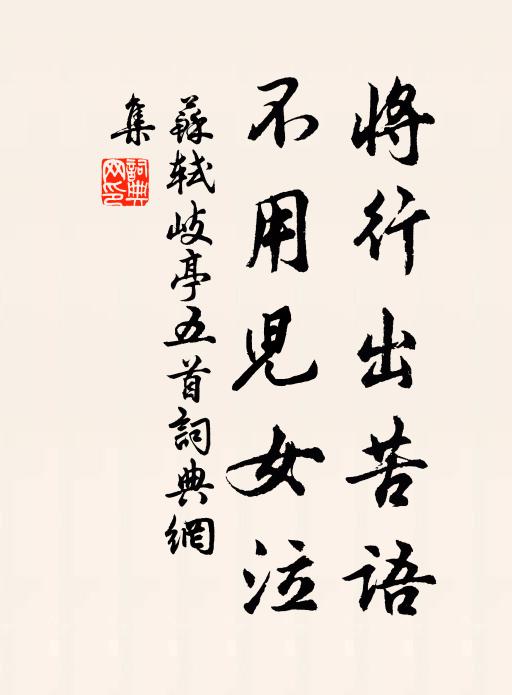 將行出苦語
不用兒女泣
蘇軾岐亭五首詞典網
集
詞典
網印